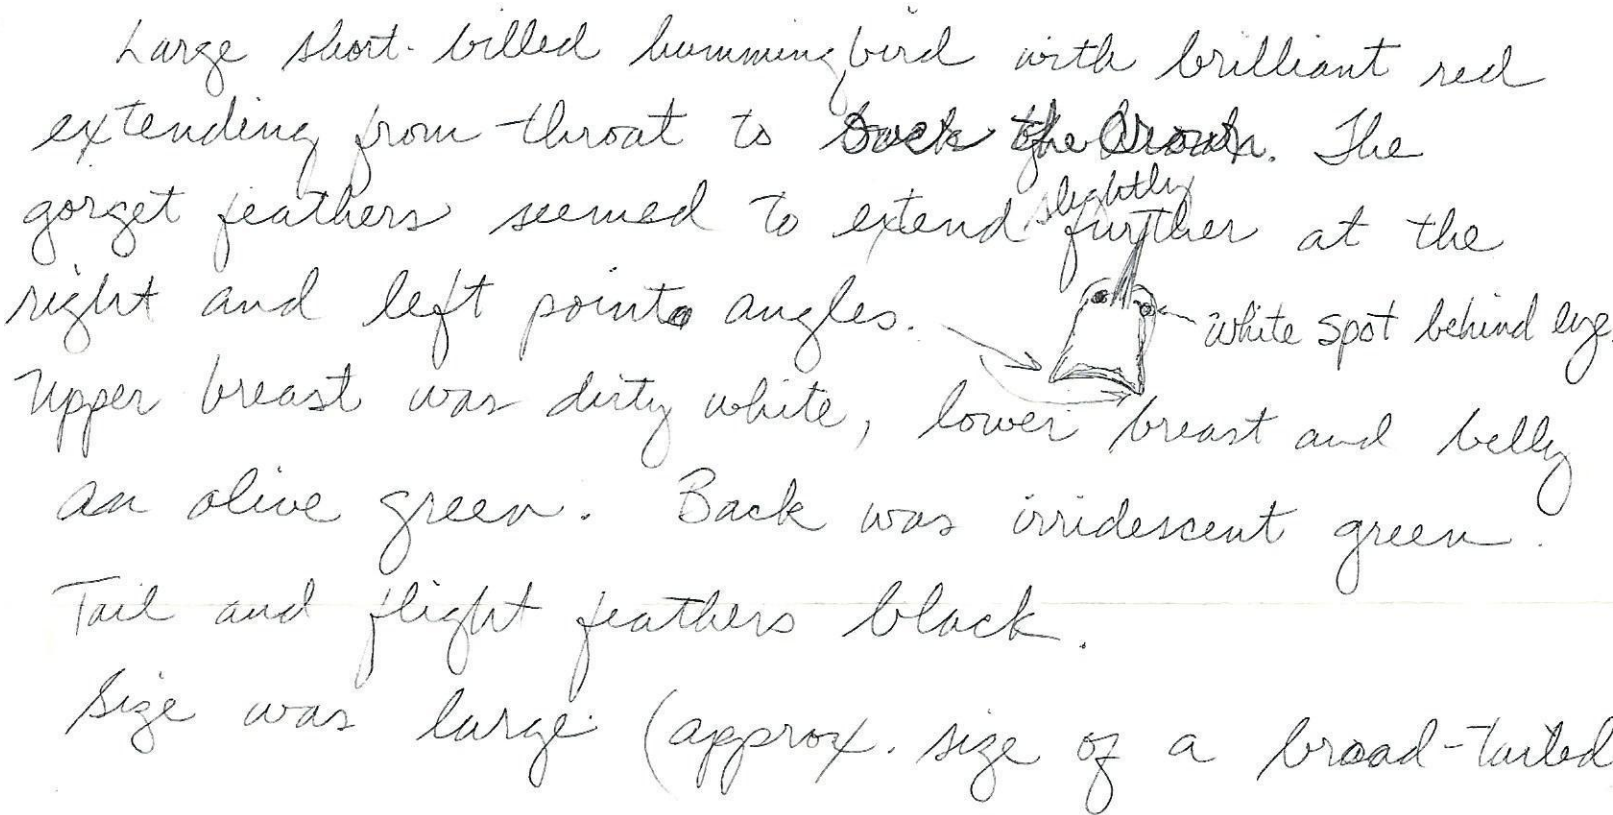 Large short-billed hummingbird with brilliant red
extending from throat to back of the crown. The
gorget feathers seemed to extend slightly further at the
right and left point angles.
white spot behind eye.
Upper breast was dirty white, lower breast and belly
an olive green. Back was irridescent green.
Tail and flight feathers black.
Size was large (approx. size of a broad-tailed